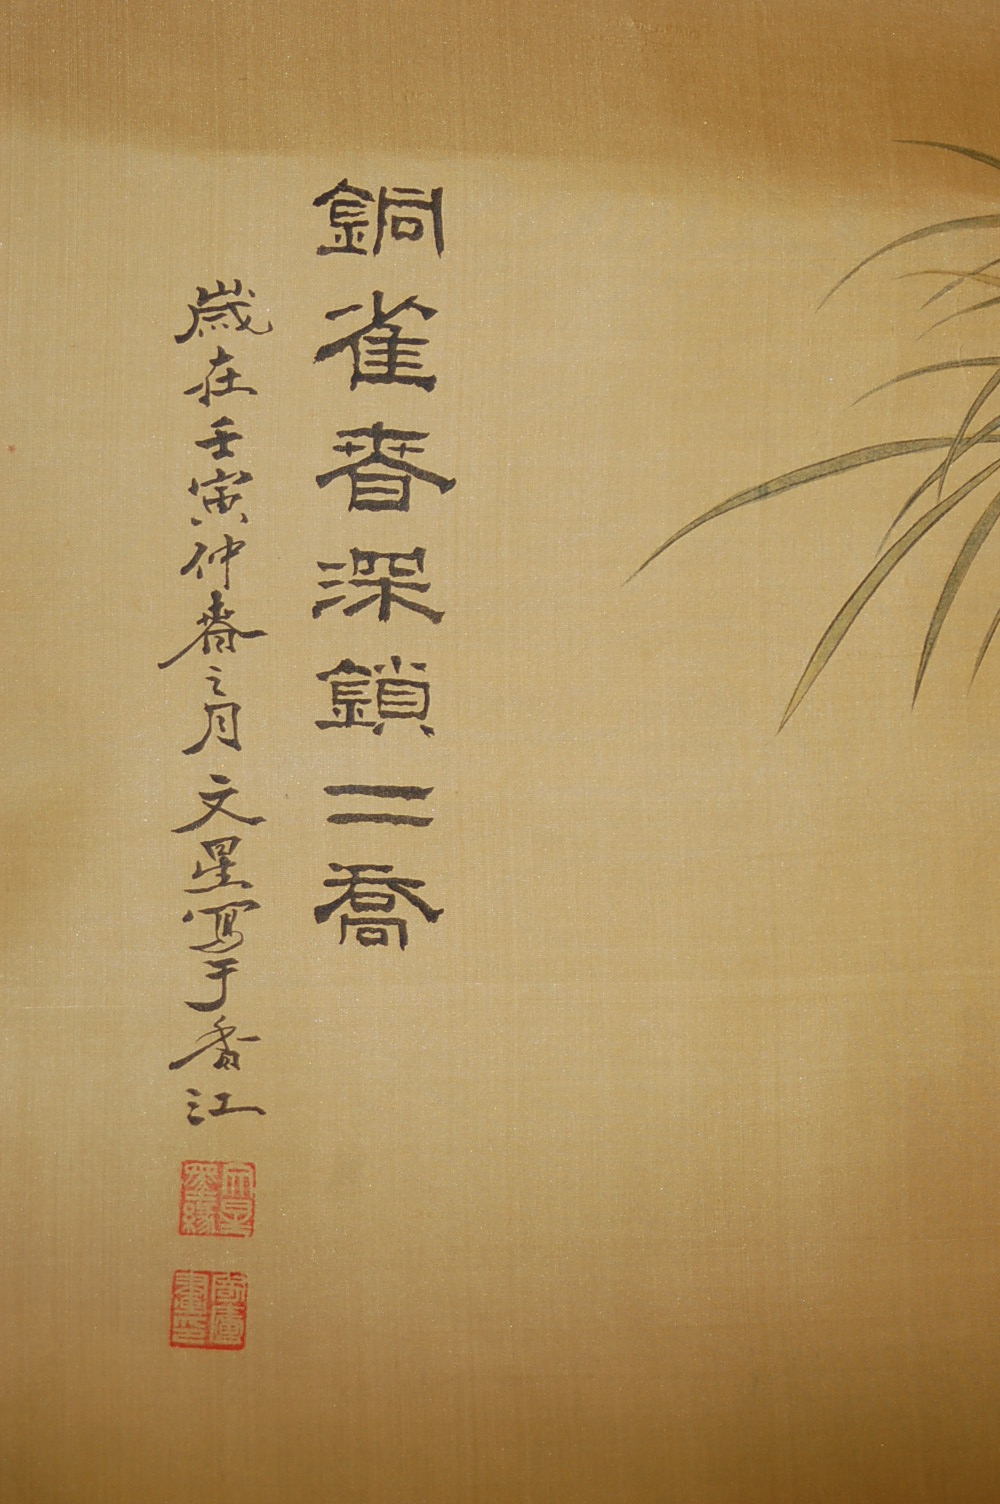 銅雀春深鎖二喬
歲在壬寅仲春之月文星寫于香江
文星墨緣